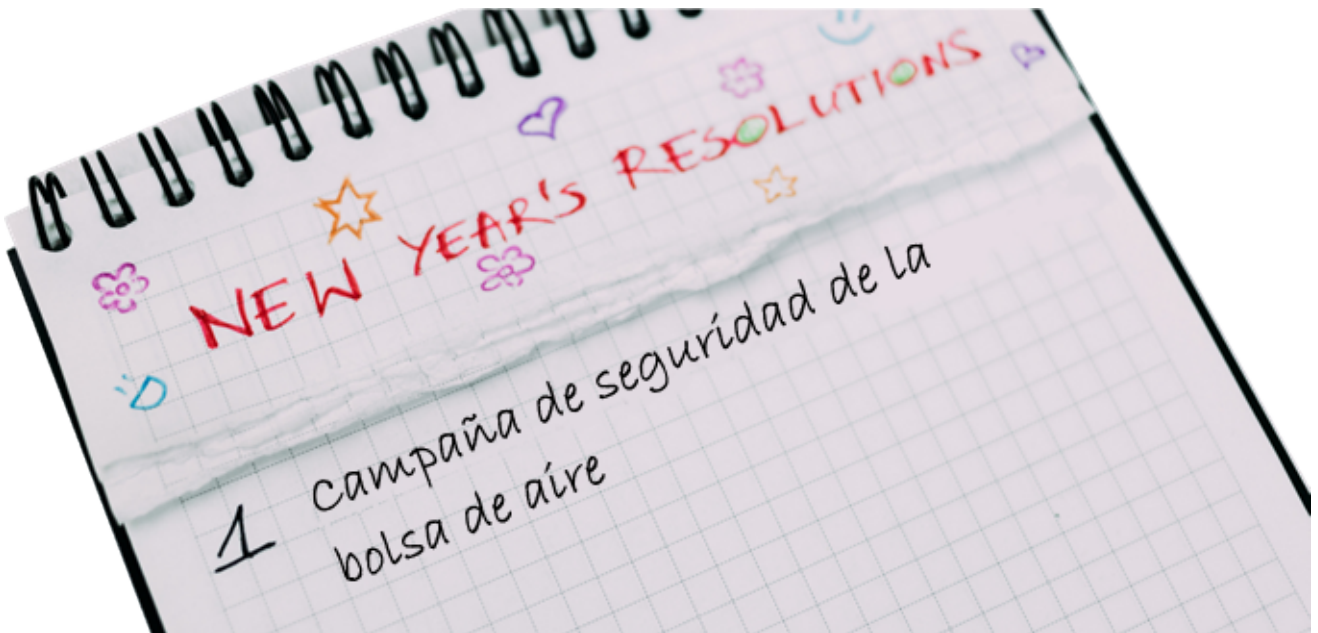 NEW YEAR'S RESOLUTIONS
1 campaña de seguridad de la
bolsa de aire